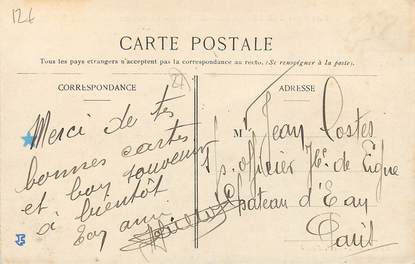 12€
CARTE POSTALE
Tous les pays etrangers n'acceptent pas la correspondance au recto. (Se renseigner à la poste).
CORRESPONDANCE
Merci de tes
bonnes cartes
et bon souvenir
à bientôt
Ton ami
ADRESSE
M. Jean Costes
S/officier de Ligne
Chateau d'Eau
Paris